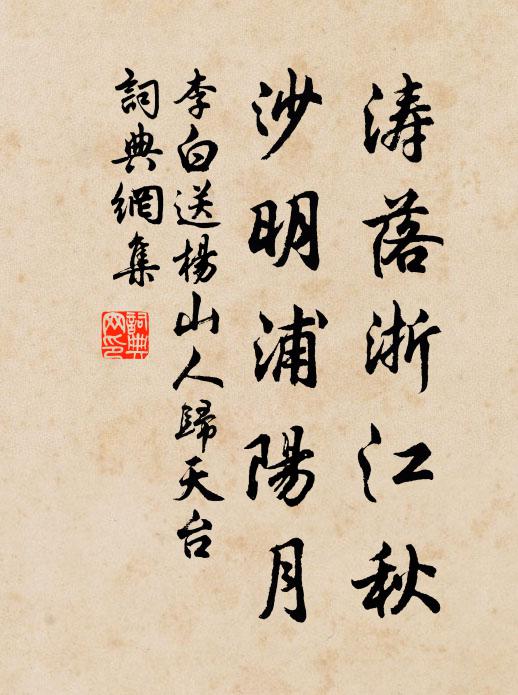 涛落浙江秋
沙明浦陽月
李白送楊山人歸天台
詞典網集
詞典網印